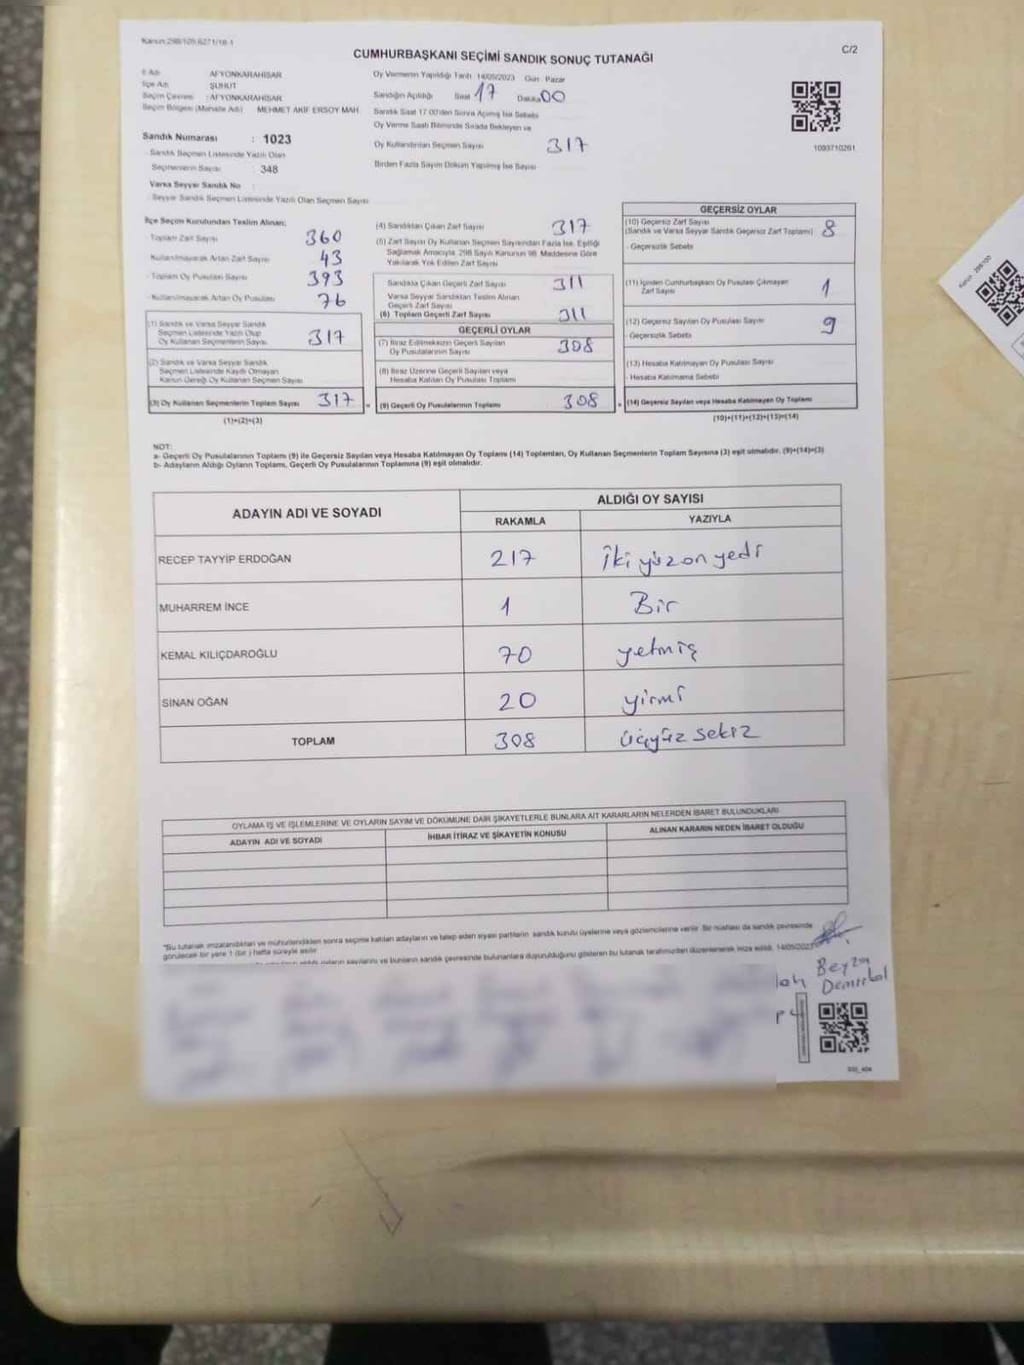 Kanun:298/109,6271/18-1
CUMHURBAŞKANI SEÇİMİ SANDIK SONUÇ TUTANAĞI
C/2
İl Adı : AFYONKARAHİSAR
İlçe Adı : ŞUHUT
Seçim Çevresi : AFYONKARAHİSAR
Seçim Bölgesi (Mahalle Adı) : MEHMET AKİF ERSOY MAH.
Sandık Numarası : 1023
Sandık Seçmen Listesinde Yazılı Olan
Seçmenlerin Sayısı : 348
Varsa Seyyar Sandık No :
Seyyar Sandık Seçmen Listesinde Yazılı Olan Seçmen Sayısı
Oy Vermenin Yapıldığı Tarih 14/05/2023 Gün Pazar
Sandığın Açıldığı Saat 17 Dakika 00
Sandık Saat 17:00'den Sonra Açılmış İse Sebebi
Oy Verme Saati Bitiminde Sırada Bekleyen ve
Oy Kullandırılan Seçmen Sayısı 317
Birden Fazla Sayım Döküm Yapılmış İse Sayısı
1093710261
İlçe Seçim Kurulundan Teslim Alınan;
- Toplam Zarf Sayısı 360
Kullanılmayarak Artan Zarf Sayısı 43
- Toplam Oy Pusulası Sayısı 393
- Kullanılmayarak Artan Oy Pusulası 76
(1) Sandık ve Varsa Seyyar Sandık
Seçmen Listesinde Yazılı Olup
Oy Kullanan Seçmenlerin Sayısı 317
(2) Sandık ve Varsa Seyyar Sandık
Seçmen Listesinde Kaydı Olmayan
Kanun Gereği Oy Kullanan Seçmen Sayısı
(3) Oy Kullanan Seçmenlerin Toplam Sayısı 317
(1)+(2)=(3)
(4) Sandıktan Çıkan Zarf Sayısı 317
(5) Zarf Sayısı Oy Kullanan Seçmen Sayısından Fazla İse, Eşitliği
Sağlamak Amacıyla 298 Sayılı Kanunun 98. Maddesine Göre
Yakılarak Yok Edilen Zarf Sayısı
Sandıkta Çıkan Geçerli Zarf Sayısı 311
Varsa Seyyar Sandıktan Teslim Alınan
Geçerli Zarf Sayısı
(6) Toplam Geçerli Zarf Sayısı 311
GEÇERLİ OYLAR
(7) İtiraz Edilmeksizin Geçerli Sayılan
Oy Pusulalarının Sayısı 308
(8) İtiraz Üzerine Geçerli Sayılan veya
Hesaba Katılan Oy Pusulası Toplamı
(9) Geçerli Oy Pusulalarının Toplamı 308
GEÇERSİZ OYLAR
(10) Geçersiz Zarf Sayısı
(Sandık ve Varsa Seyyar Sandık Geçersiz Zarf Toplamı) 8
- Geçersizlik Sebebi
(11) İçinden Cumhurbaşkanı Oy Pusulası Çıkmayan
Zarf Sayısı 1
(12) Geçersiz Sayılan Oy Pusulası Sayısı 9
- Geçersizlik Sebebi
(13) Hesaba Katılmayan Oy Pusulası Sayısı
- Hesaba Katılmama Sebebi
(14) Geçersiz Sayılan veya Hesaba Katılmayan Oy Toplamı
(10)+(11)+(12)+(13)=(14)
NOT:
a- Geçerli Oy Pusulalarının Toplamı (9) ile Geçersiz Sayılan veya Hesaba Katılmayan Oy Toplamı (14) Toplamları, Oy Kullanan Seçmenlerin Toplam Sayısına (3) eşit olmalıdır. (9)+(14)=(3)
b- Adayların Aldığı Oyların Toplamı, Geçerli Oy Pusulalarının Toplamına (9) eşit olmalıdır.
ADAYIN ADI VE SOYADI
ALDIĞI OY SAYISI
RAKAMLA YAZIYLA
RECEP TAYYİP ERDOĞAN 217 İki yüz on yedi
MUHARREM İNCE 1 Bir
KEMAL KILIÇDAROĞLU 70 yetmiş
SİNAN OĞAN 20 yirmi
TOPLAM 308 üçyüz sekiz
OYLAMA İŞ VE İŞLEMLERİNE VE OYLARIN SAYIM VE DÖKÜMÜNE DAİR ŞİKAYETLERLE BUNLARA AİT KARARLARIN NELERDEN İBARET BULUNDUKLARI
ADAYIN ADI VE SOYADI İHBAR İTİRAZ VE ŞİKAYETİN KONUSU ALINAN KARARIN NEDEN İBARET OLDUĞU
"Bu tutanak imzalandıktan ve mühürlendikten sonra seçime katılan adayların ve talep eden siyasi partilerin sandık kurulu üyelerine veya gözlemcilerine verilir. Bir nüshası da sandık çevresinde
görülecek bir yere 1 (bir) hafta süreyle asılır.
sayılarını ve bunların sandık çevresinde bulunanlara duyurulduğunu gösteren bu tutanak tarafımızdan düzenlenerek imza edildi. 14/05/2023
Beyza
Demirbal